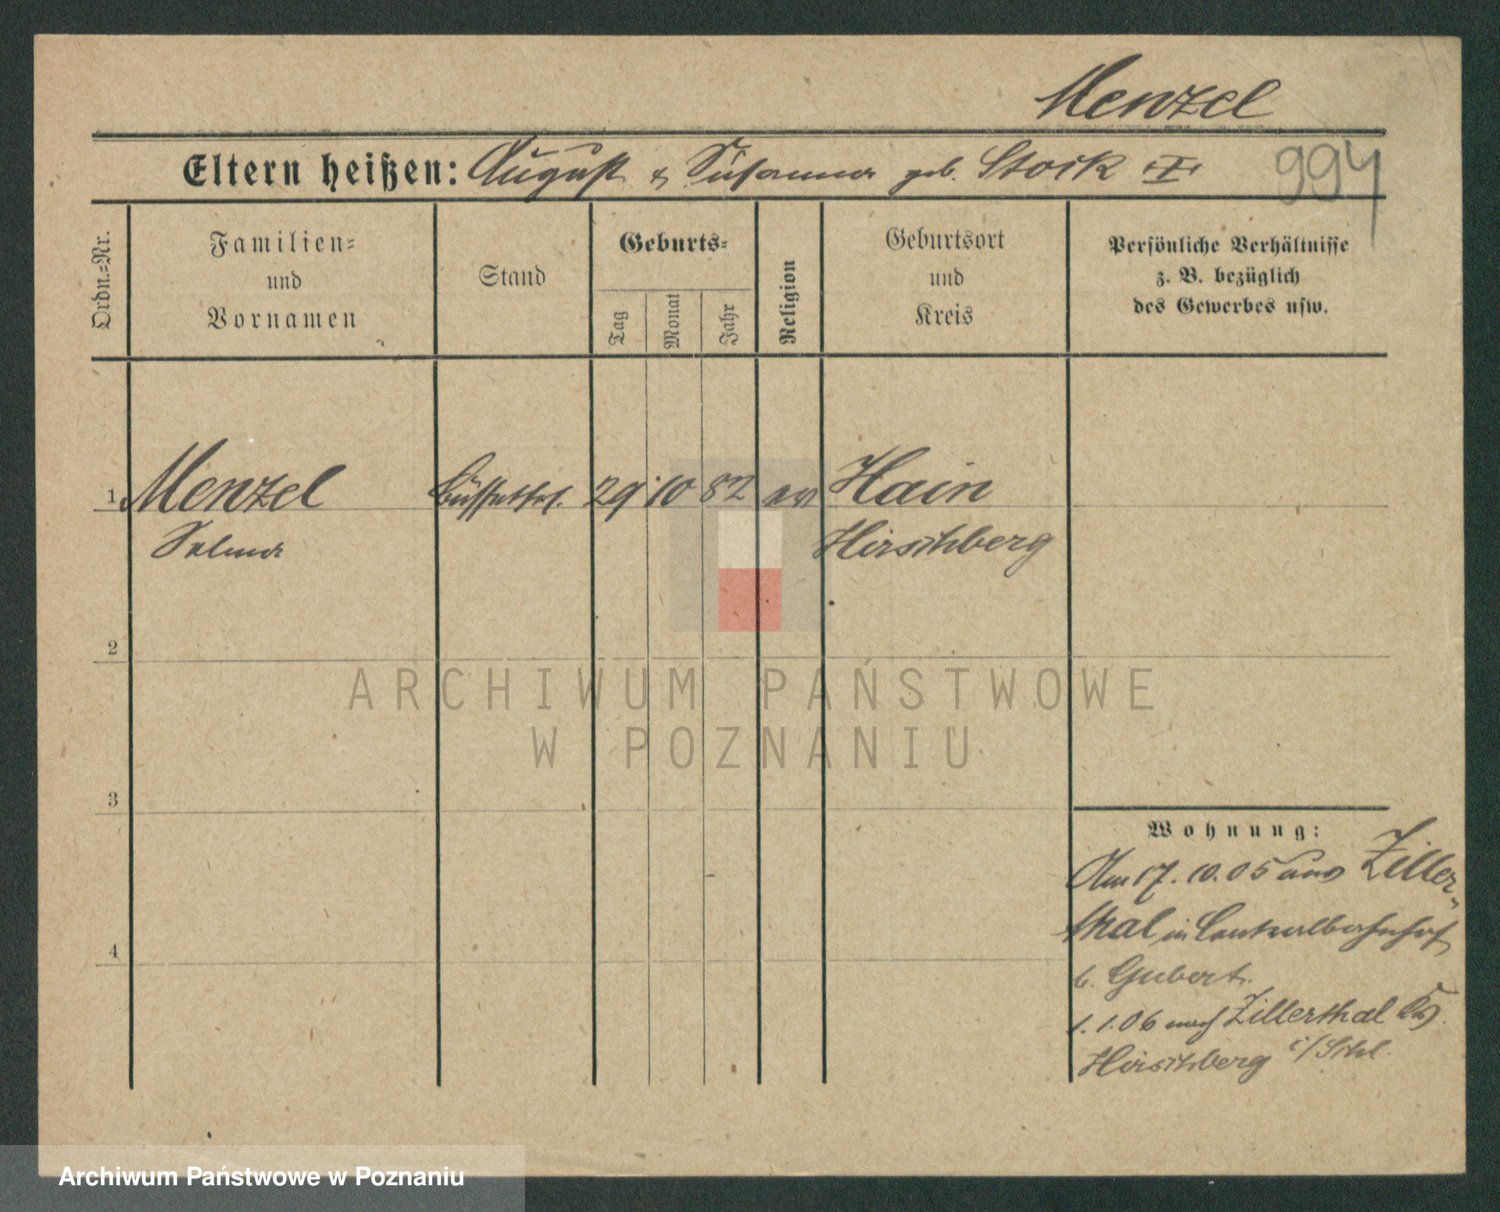 Menzel
Eltern heißen: August & Susanna geb. Stock
994
Ordn.-Nr.
Familien-
und
Vornamen
Stand
Geburts-
Tag
Monat
Jahr
Religion
Geburtsort
und
Kreis
Persönliche Verhältnisse
z. B. bezüglich
des Gewerbes usw.
1 Menzel Büffettfrl. 29 10 82 ev Hain
Selma Hirschberg
2
ARCHIWUM PAŃSTWOWE
W POZNANIU
3
Wohnung:
Am 17.10.05 aus Ziller-
thal in Centralbahnhof
b. Gubert.
4
1.1.06 nach Zillerthal Krs
Hirschberg i/Schl.
Archiwum Państwowe w Poznaniu